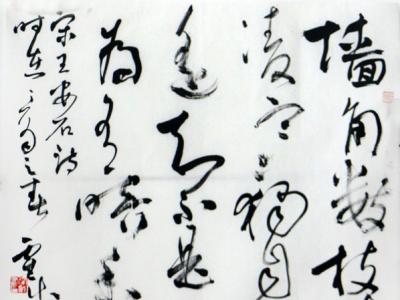 墙角数枝
凌寒独自
遥知不是
为有暗香
宋王安石诗
时在
之春